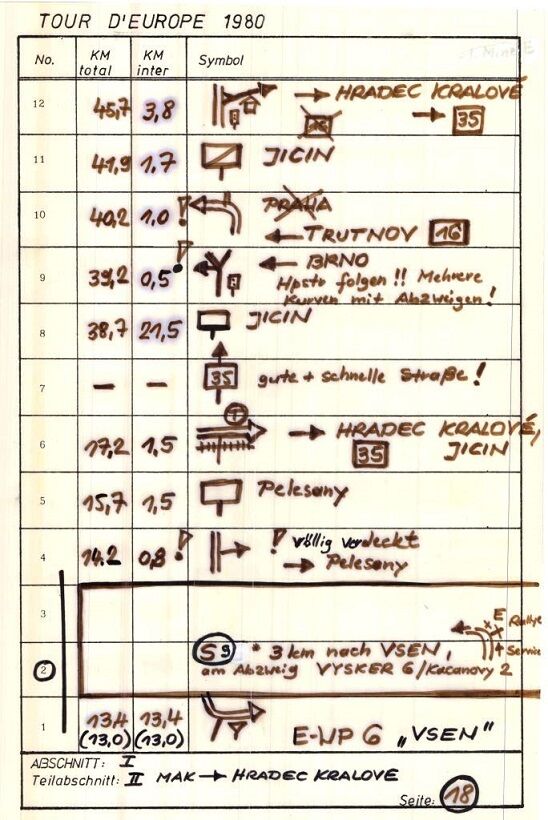 TOUR D'EUROPE 1980
No. KM total KM inter Symbol
12 45,7 3,8 → HRADEC KRALOVÉ
16 → 35
11 41,9 1,7 JICIN
10 40,2 1,0 ! PRAHA
← TRUTNOV 16
9 39,2 0,5 ! ← BRNO
Hpstr folgen !! Mehrere
Kurven mit Abzweigen !
8 38,7 21,5 JICIN
7 — — 35 gute + schnelle Straße !
6 17,2 1,5 T → HRADEC KRALOVÉ,
35 JICIN
5 15,7 1,5 Pelesany
4 14,2 0,8 ! ! völlig verdeckt
→ Pelesany
3 E Rallye
2 S9 * 3 km nach VSEN, Service
am Abzweig VYSKER 6/Kacanovy 2
1 13,4 13,4 E-WP 6 „VSEN"
(13,0) (13,0)
ABSCHNITT: I
Teilabschnitt: II MAK → HRADEC KRALOVE
Seite: 18